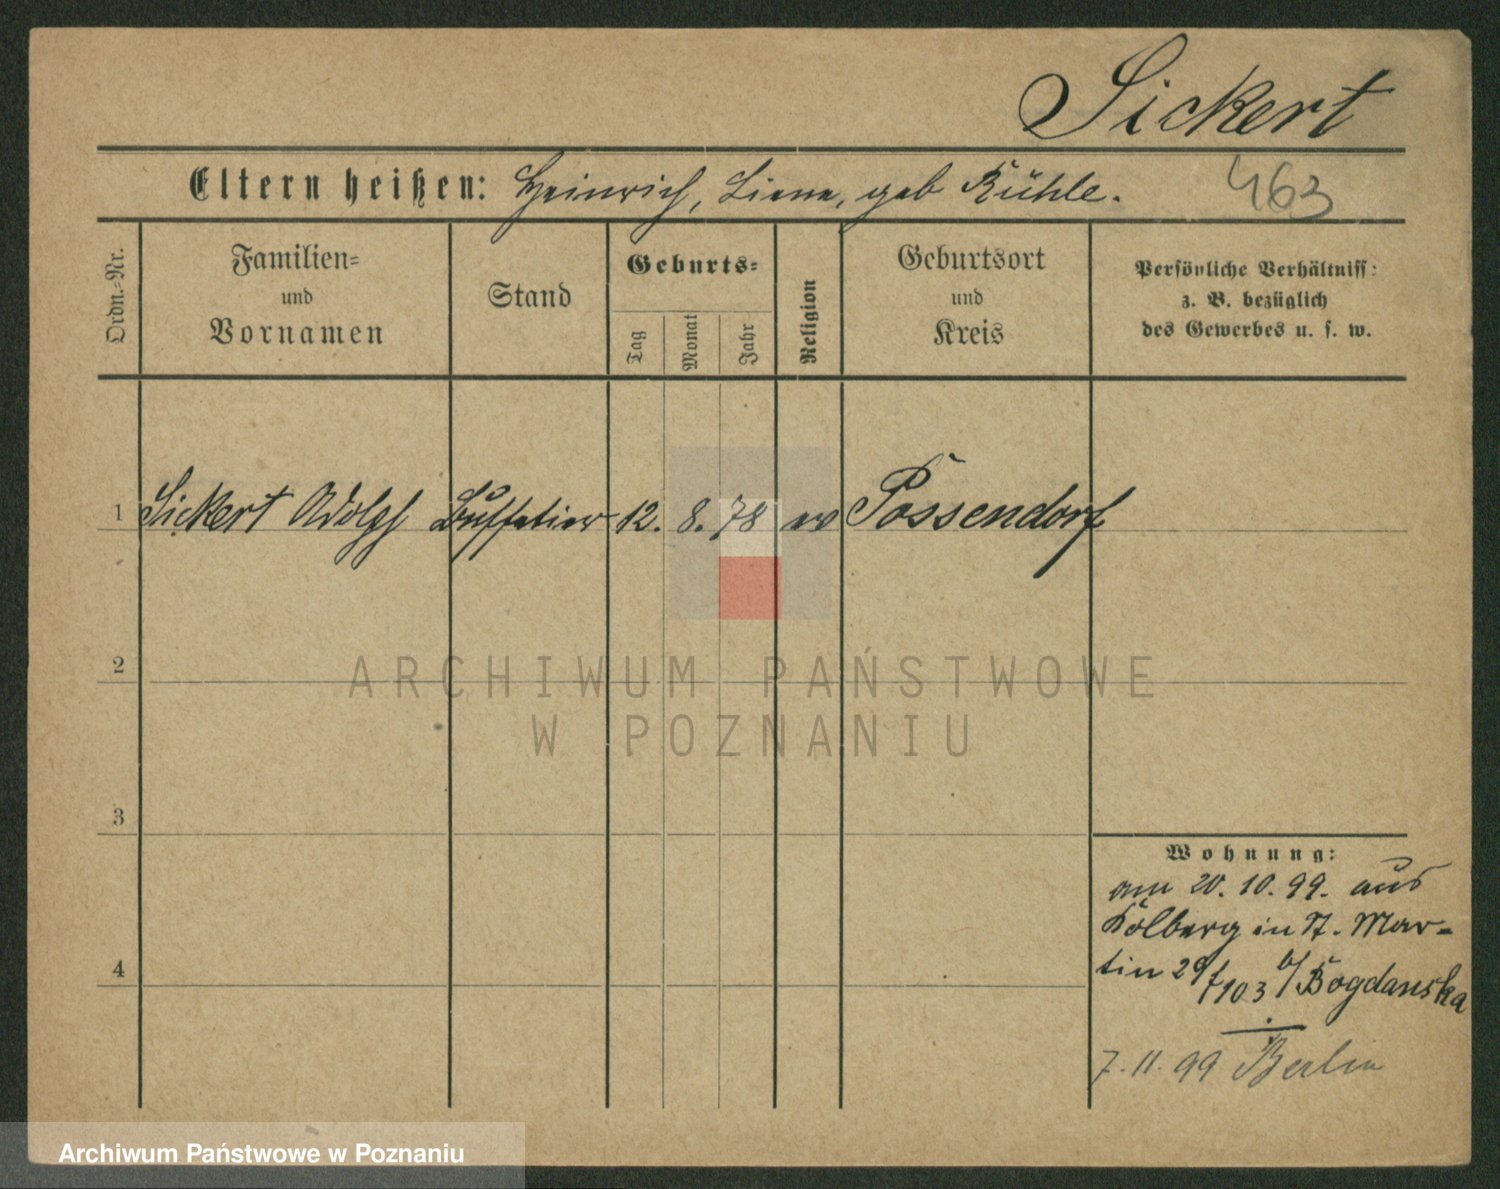 Sickert
Eltern heißen: Heinrich, Liena, geb Kühle.
463
Ordn.-Nr.
Familien-
und
Vornamen
Stand
Geburts-
Tag
Monat
Jahr
Religion
Geburtsort
und
Kreis
Persönliche Verhältniss:
z. B. bezüglich
des Gewerbes u. s. w.
1 Sickert Adolf Buffetier 12. 8. 78 ev Possendorf
2
ARCHIWUM PAŃSTWOWE
W POZNANIU
3
Wohnung:
am 20. 10. 99. aus
Kolberg in St. Mar-
4
tin 29/103 b/ Bogdanska
7. 11. 99 Berlin
Archiwum Państwowe w Poznaniu